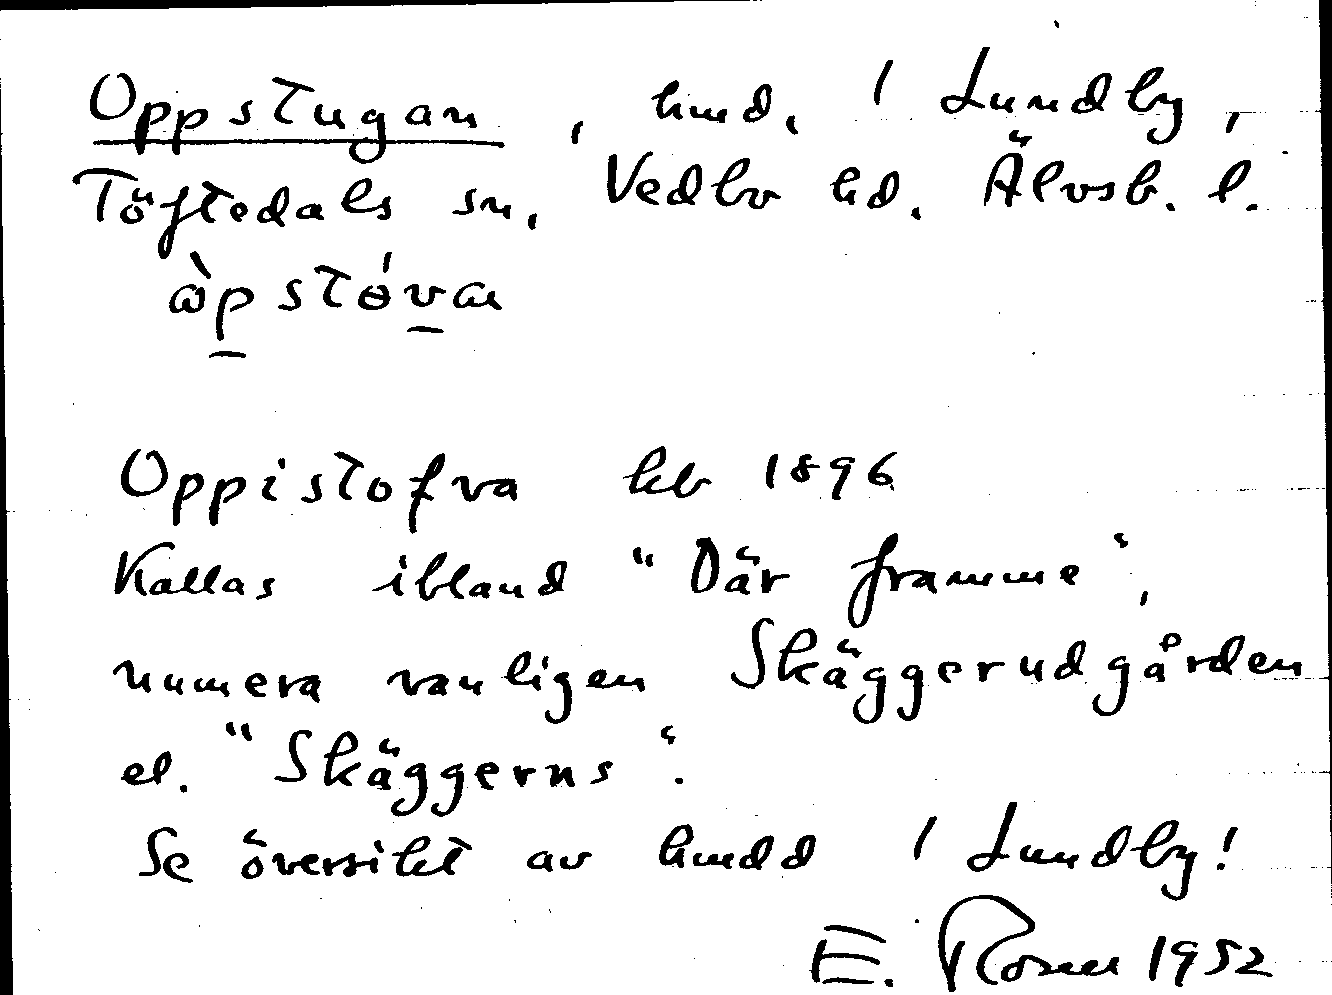 Oppstugan, hmd. / Lundby,
Töftedals sn, Vedbo hd. Älvsb. l.
ὼpstɵ́va
Oppistofva hb 1896
Kallas ibland "Där framme",
numera vanligen Skäggerudgården
el. "Skäggerns".
Se översikt av hmdd / Lundby!
E. 1952